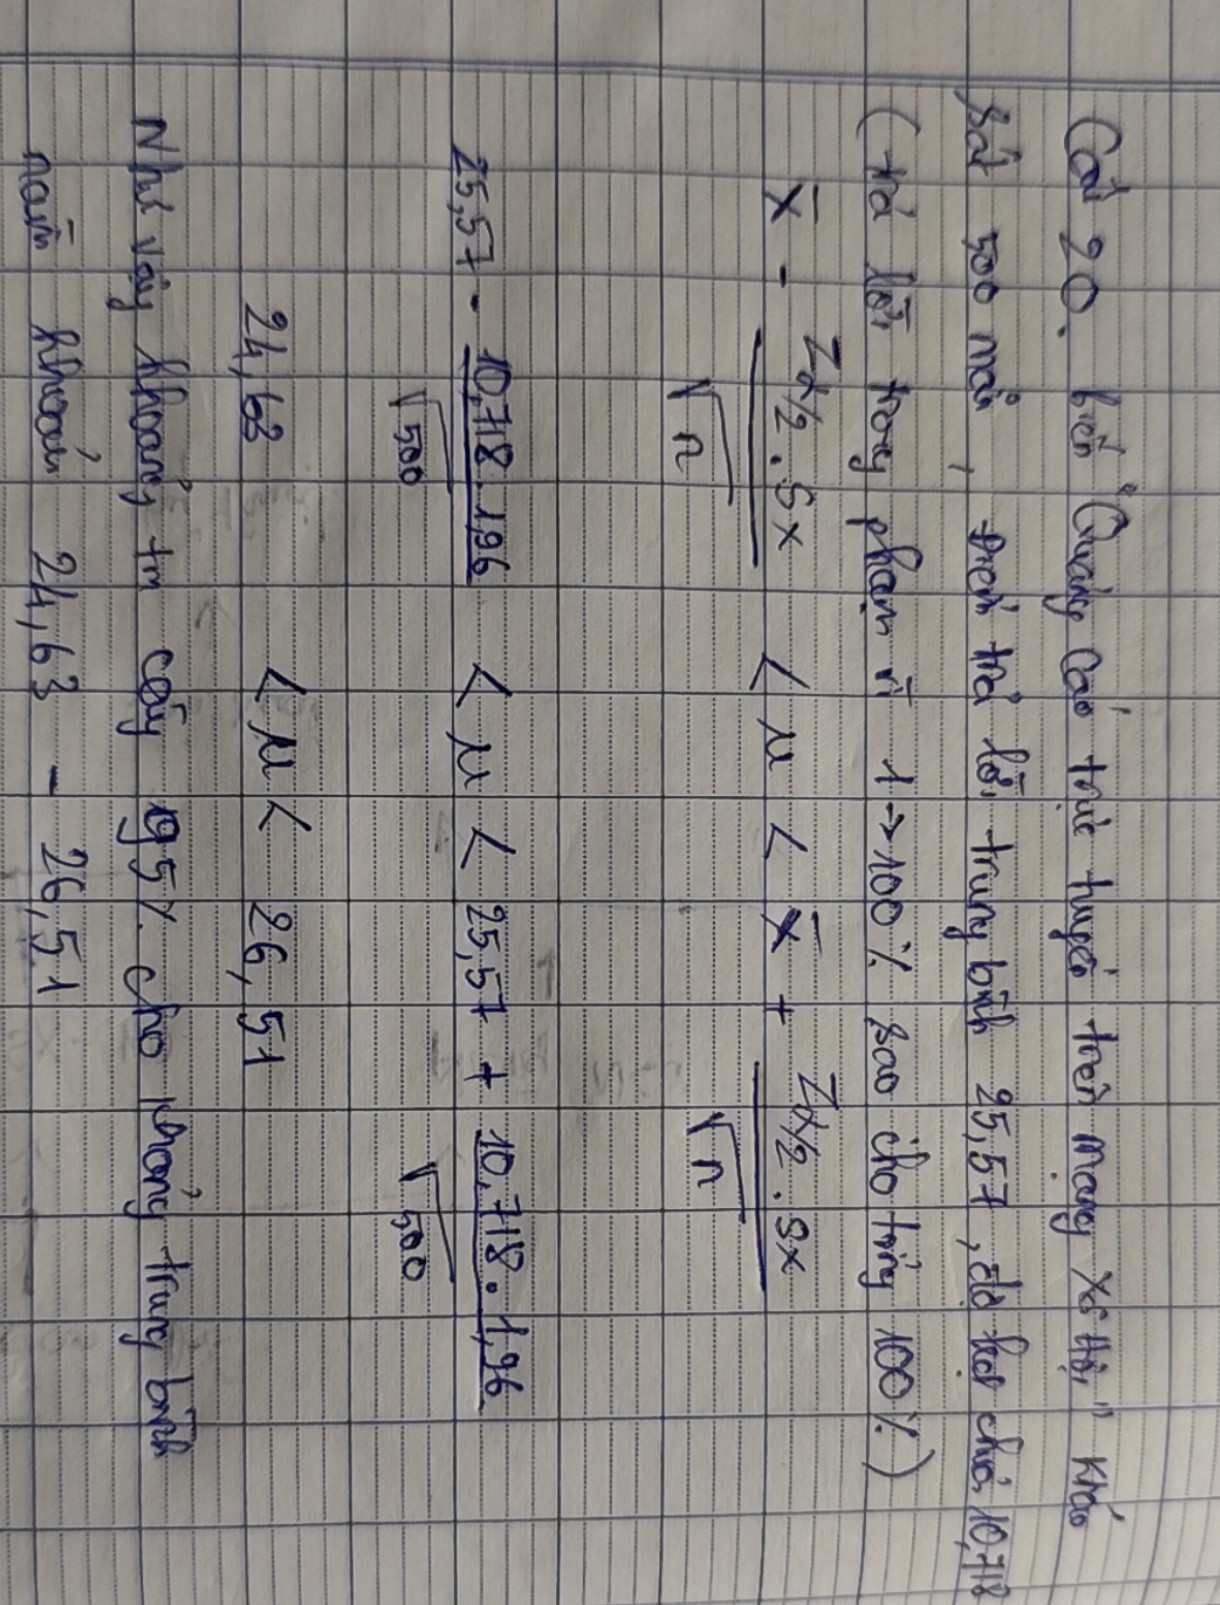 Câu 20. biến "Quảng Cáo trực tuyến trên mạng xã hội" khảo
sát 500 mẫu, Điểm trả lời trung bình 25,57, độ lệch chuẩn 10,718
(trả lời trong phạm vi 1 -> 100% sao cho tổng 100%)
x̄ - Zα/2 . Sx / √n < μ < x̄ + Zα/2 . Sx / √n
25,57 - 10,718 . 1,96 / √500 < μ < 25,57 + 10,718 . 1,96 / √500
24,63 < μ < 26,51
Như vậy khoảng tin cậy 95% cho khoảng trung bình
nằm khoản 24,63 - 26,51